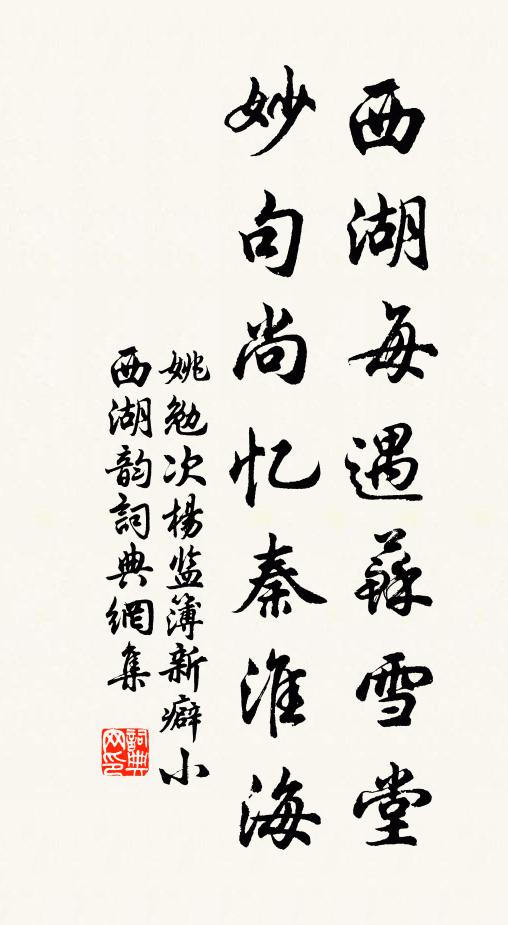 西湖每遇蘇雪堂
妙句尚忆秦淮海
姚勉次楊监簿新癖小
西湖韵詞典網集
詞典网印